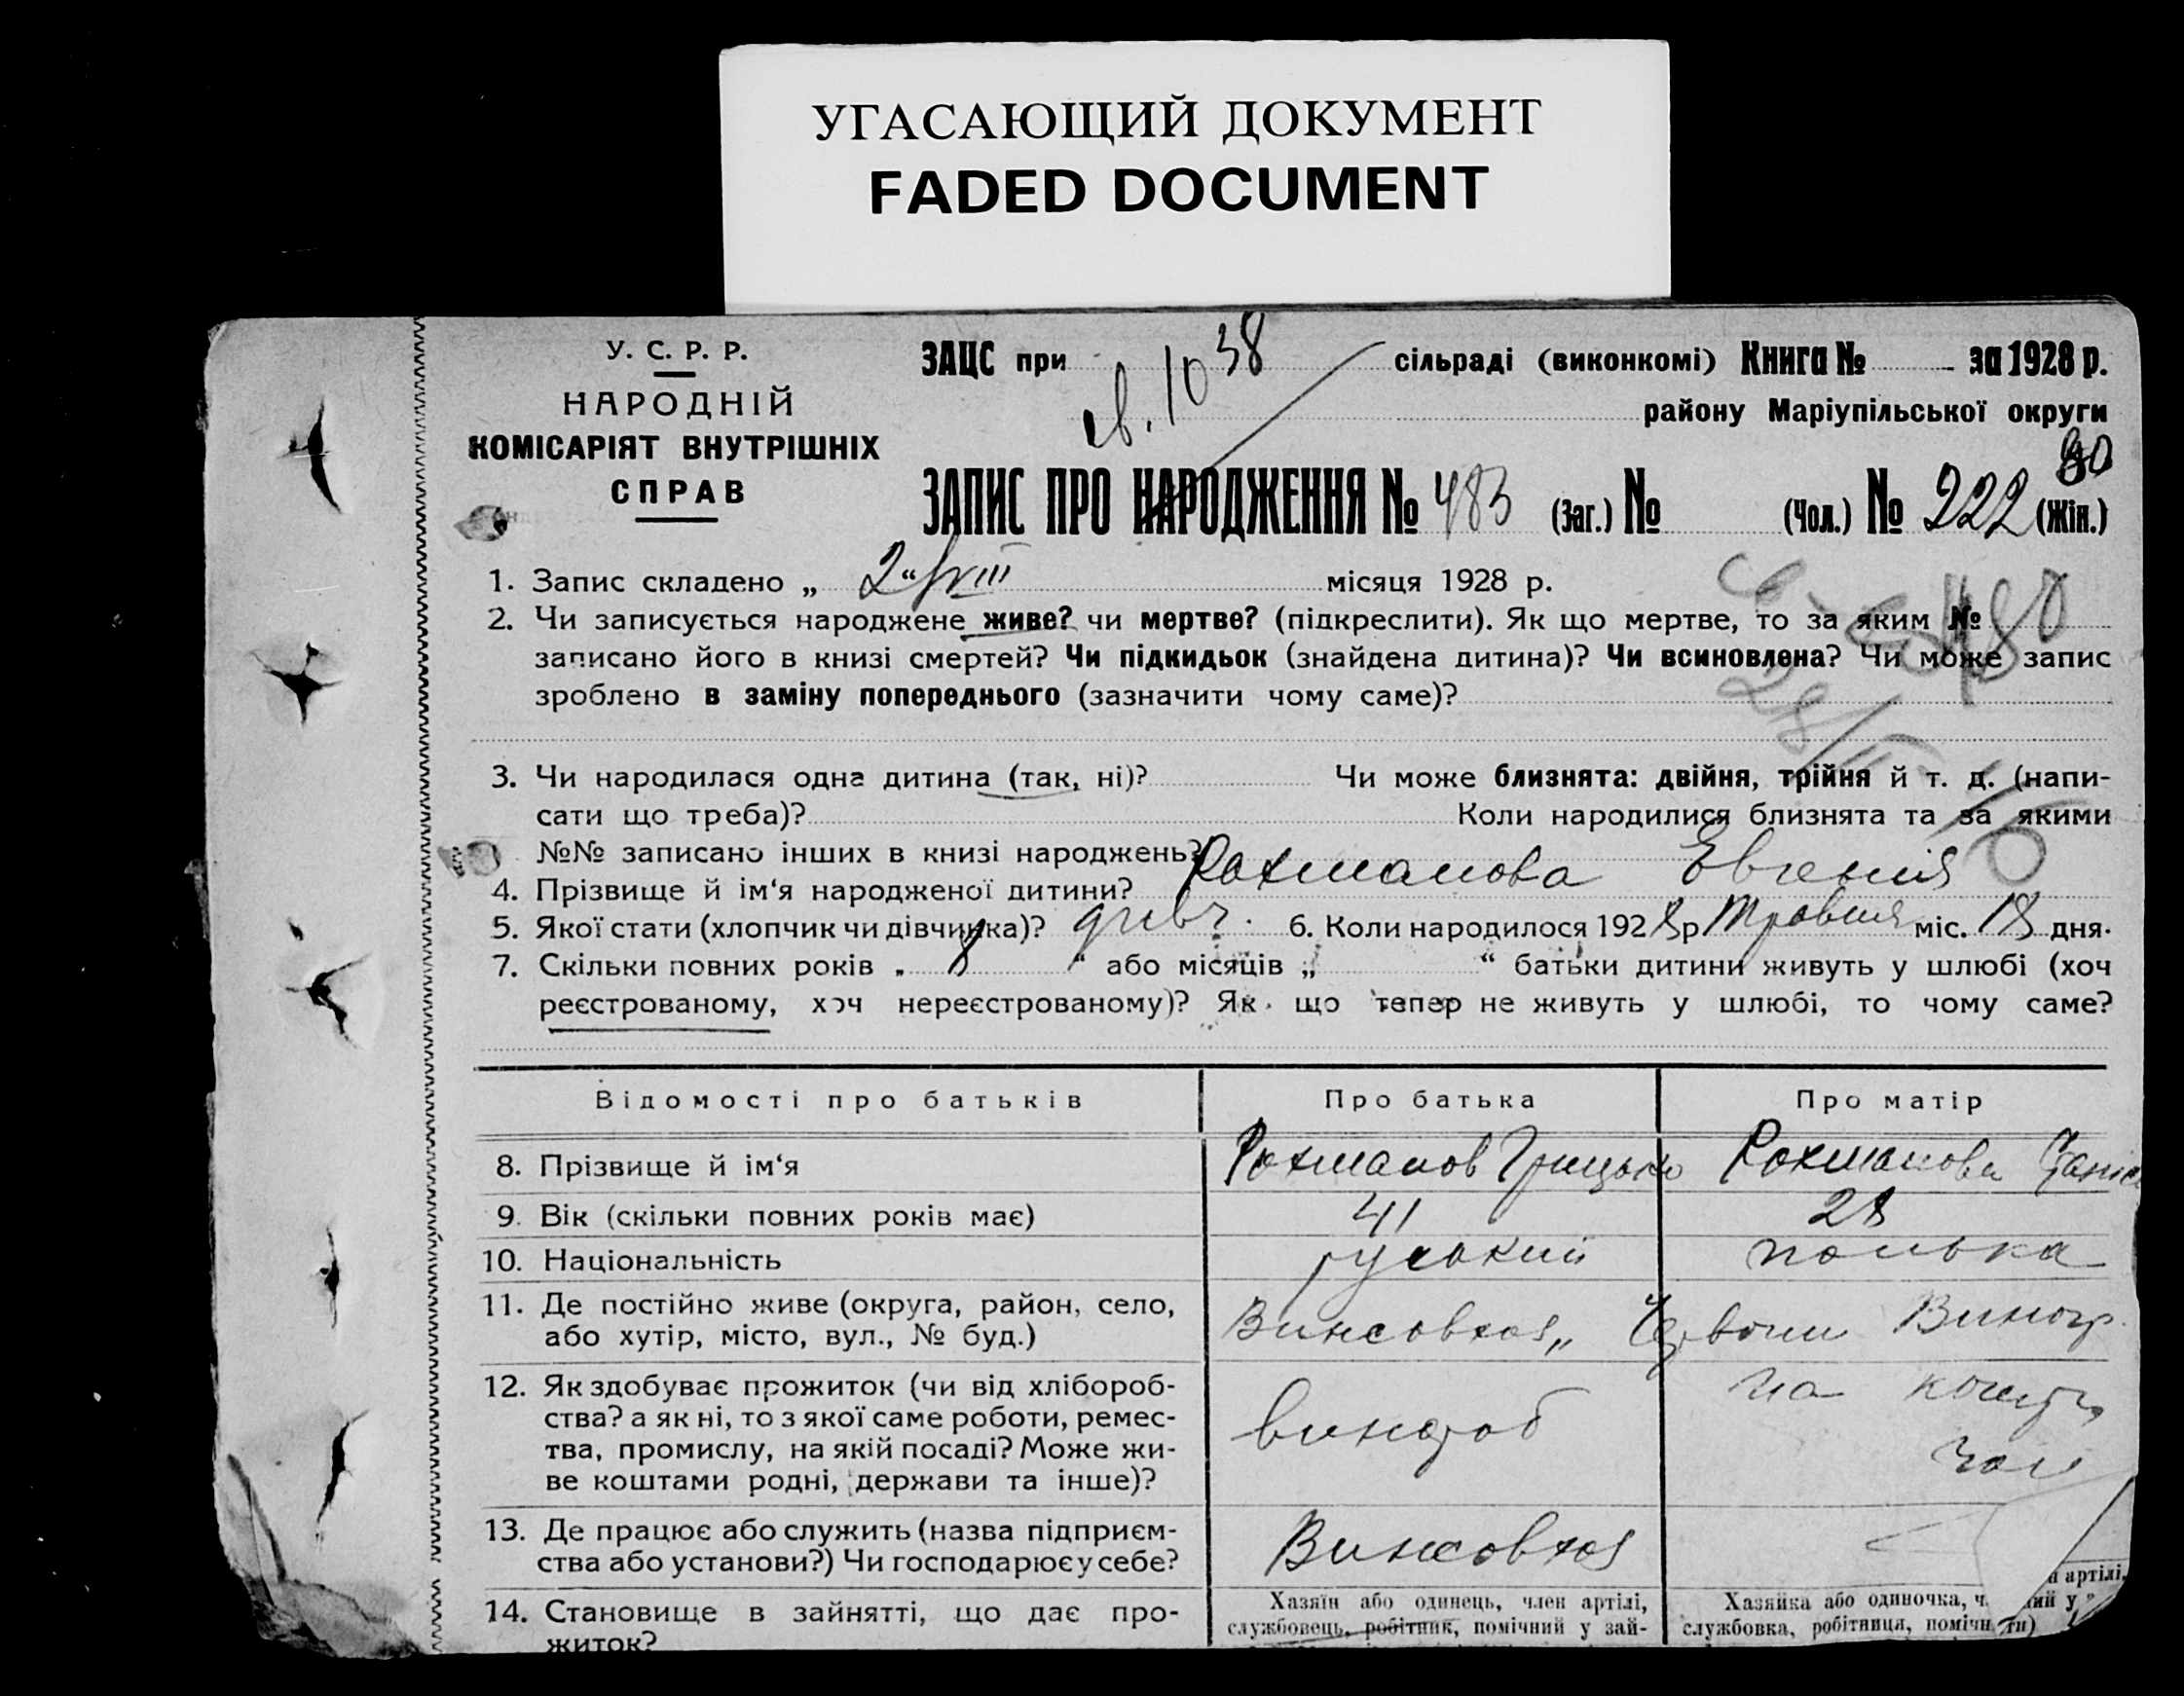 УГАСАЮЩИЙ ДОКУМЕНТ
FADED DOCUMENT
У. С. Р. Р.
НАРОДНІЙ
КОМІСАРІЯТ ВНУТРІШНІХ
СПРАВ
ЗАЦС при сільраді (виконкомі) Книга № за 1928 р.
1038
району Маріупільської округи
ЗАПИС ПРО НАРОДЖЕННЯ № 483 (Заг.) № (Чол.) № 222 (Жін.)
1. Запис складено „ 2 “ VIII місяця 1928 р.
2. Чи записується народжене живе? чи мертве? (підкреслити). Як що мертве, то за яким №
записано його в книзі смертей? Чи підкидьок (знайдена дитина)? Чи всиновлена? Чи може запис
зроблено в заміну попереднього (зазначити чому саме)?
3. Чи народилася одна дитина (так, ні)? Чи може близнята: двійня, трійня й т. д. (напи-
сати що треба)? Коли народилися близнята та за якими
№№ записано інших в книзі народжень?
4. Прізвище й ім‘я народженої дитини? Рохманова Евгенія
5. Якої стати (хлопчик чи дівчинка)? дивч. 6. Коли народилося 1928 р. Травня міс. 18 дня.
7. Скільки повних років „ 8 “ або місяців „ “ батьки дитини живуть у шлюбі (хоч
реєстрованому, хоч нереєстрованому)? Як що тепер не живуть у шлюбі, то чому саме?
Відомості про батьків Про батька Про матір
8. Прізвище й ім‘я Рохманов Грицько Рохманова
9. Вік (скільки повних років має) 41 28
10. Національність руський полька
11. Де постійно живе (округа, район, село,
або хутір, місто, вул., № буд.) Винсовхоз „ Червони Виногр.
12. Як здобуває прожиток (чи від хлібороб-
ства? а як ні, то з якої саме роботи, ремес-
тва, промислу, на якій посаді? Може жи-
ве коштами родні, держави та інше)?
на
13. Де працює або служить (назва підприєм-
ства або установи?) Чи господарює у себе? Винсовхоз
14. Становище в зайнятті, що дає про-
житок?
Хазяїн або одинець, член артілі,
службовець, робітник, помічний у зай-
Хазяйка або одиночка, ч
артілі,
службовка, робітниця, помічн